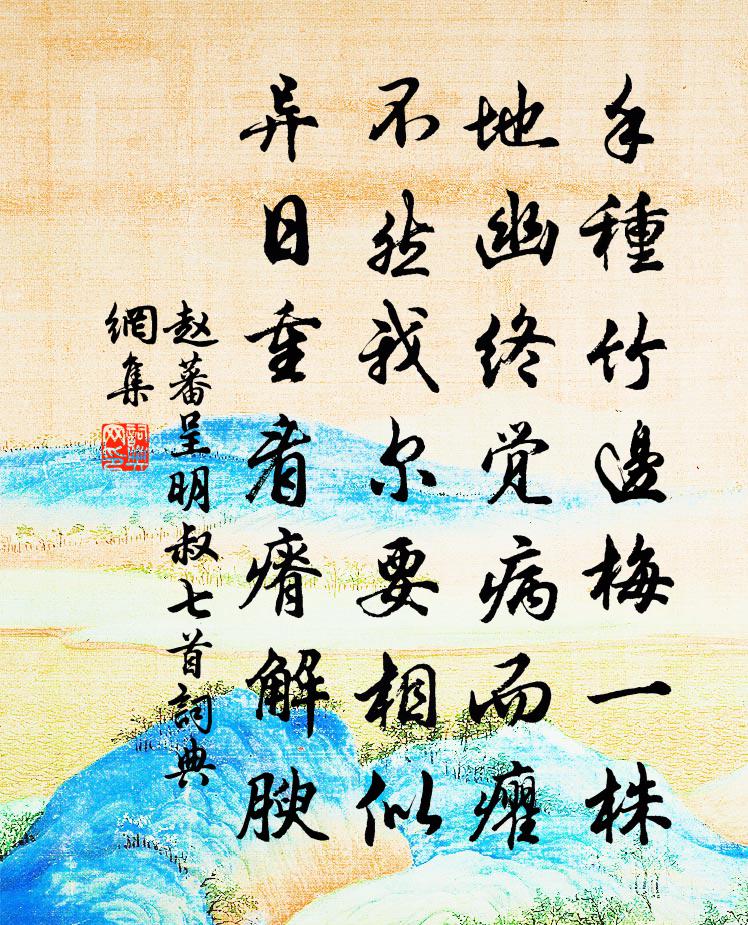 手種竹邊梅一株
地幽終覚病而癯
不然我尔要相似
异日重看瘠解腴
赵蕃呈明叔七首詞典
網集